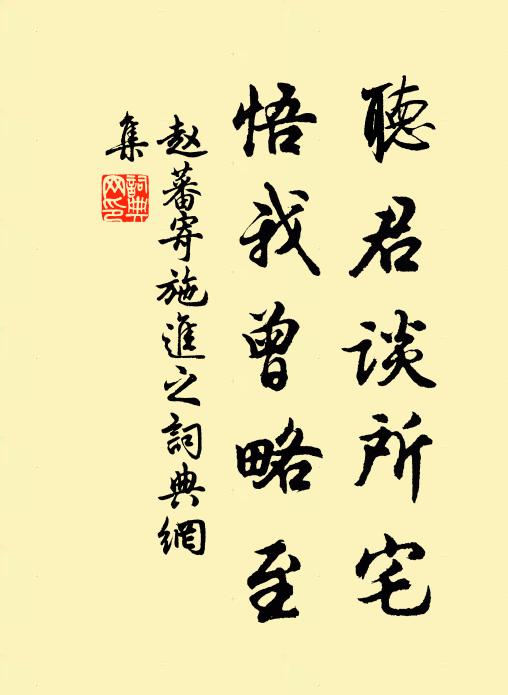 聽君談所宅
悟我曾略至
赵蕃寄施進之詞典網
集
詞典
网印